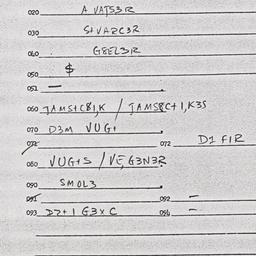 020 A VATS3R
030 S+VARC3R
060 G8EL3R
050 $
051 —
060 JAMS+C8I,K / JAMS8C+I,K3S
070 D3M VUG+
072 072 D1 FIR
080 VUG+S / VE,G3N3R
090 SMOL3
091 092 —
093 D7+1 G3XC 096 —